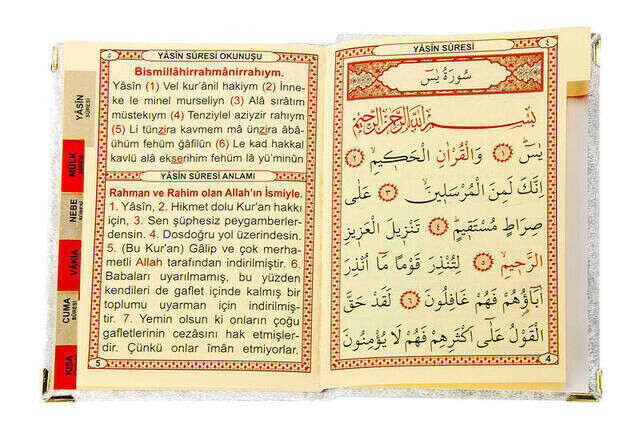 YÂSİN SÛRESİ OKUNUŞU
Bismillâhirrahmânirrahıym.
Yâsîn (1) Vel kur'ânil hakiym (2) İnne-
ke le minel murseliyn (3) Alâ sırâtım
müstekıym (4) Tenziylel aziyzir rahıym
(5) Li tünzira kavmem mâ ünzira âbâ-
ühüm fehüm ğâfilûn (6) Le kad hakkal
kavlü alâ ekserihim fehüm lâ yü'minûn
YÂSİN SÛRESİ ANLAMI
Rahman ve Rahim olan Allah'ın İsmiyle.
1. Yâsîn, 2. Hikmet dolu Kur'an hakkı
için, 3. Sen şüphesiz peygamberler-
densin. 4. Dosdoğru yol üzerindesin.
5. (Bu Kur'an) Gâlip ve çok merha-
metli Allah tarafından indirilmiştir. 6.
Babaları uyarılmamış, bu yüzden
kendileri de gaflet içinde kalmış bir
toplumu uyarman için indirilmiş-
tir. 7. Yemin olsun ki onların çoğu
gafletlerinin cezasını hak etmişler-
dir. Çünkü onlar îmân etmiyorlar.
5
YÂSİN
SÛRESİ
MÜLK
SÛRESİ
NEBE
SÛRESİ
VÂKIA
CUMA
SÛRESİ
KISA
٥
YÂSİN SÛRESİ
٤
سُورَةُ يٰسٓ
بِسْمِ اللّٰهِ الرَّحْمٰنِ الرَّحِيمِ
يٰسٓ ﴿١﴾ وَالْقُرْاٰنِ الْحَكِيمِ ﴿٢﴾
اِنَّكَ لَمِنَ الْمُرْسَلِينَ ﴿٣﴾ عَلٰى
صِرَاطٍ مُسْتَقِيمٍ ﴿٤﴾ تَنْزِيلَ الْعَزِيزِ
الرَّحِيمِ ﴿٥﴾ لِتُنْذِرَ قَوْمًا مَٓا اُنْذِرَ
اٰبَٓاؤُهُمْ فَهُمْ غَافِلُونَ ﴿٦﴾ لَقَدْ حَقَّ
الْقَوْلُ عَلٰٓى اَكْثَرِهِمْ فَهُمْ لَا يُؤْمِنُونَ
4